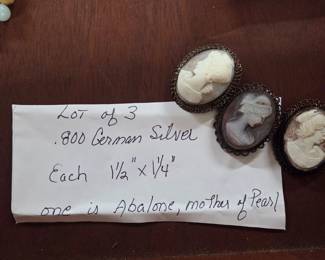 Lot of 3
.800 German Silver
Each 1½" x 1¼"
one is Abalone, mother of Pearl